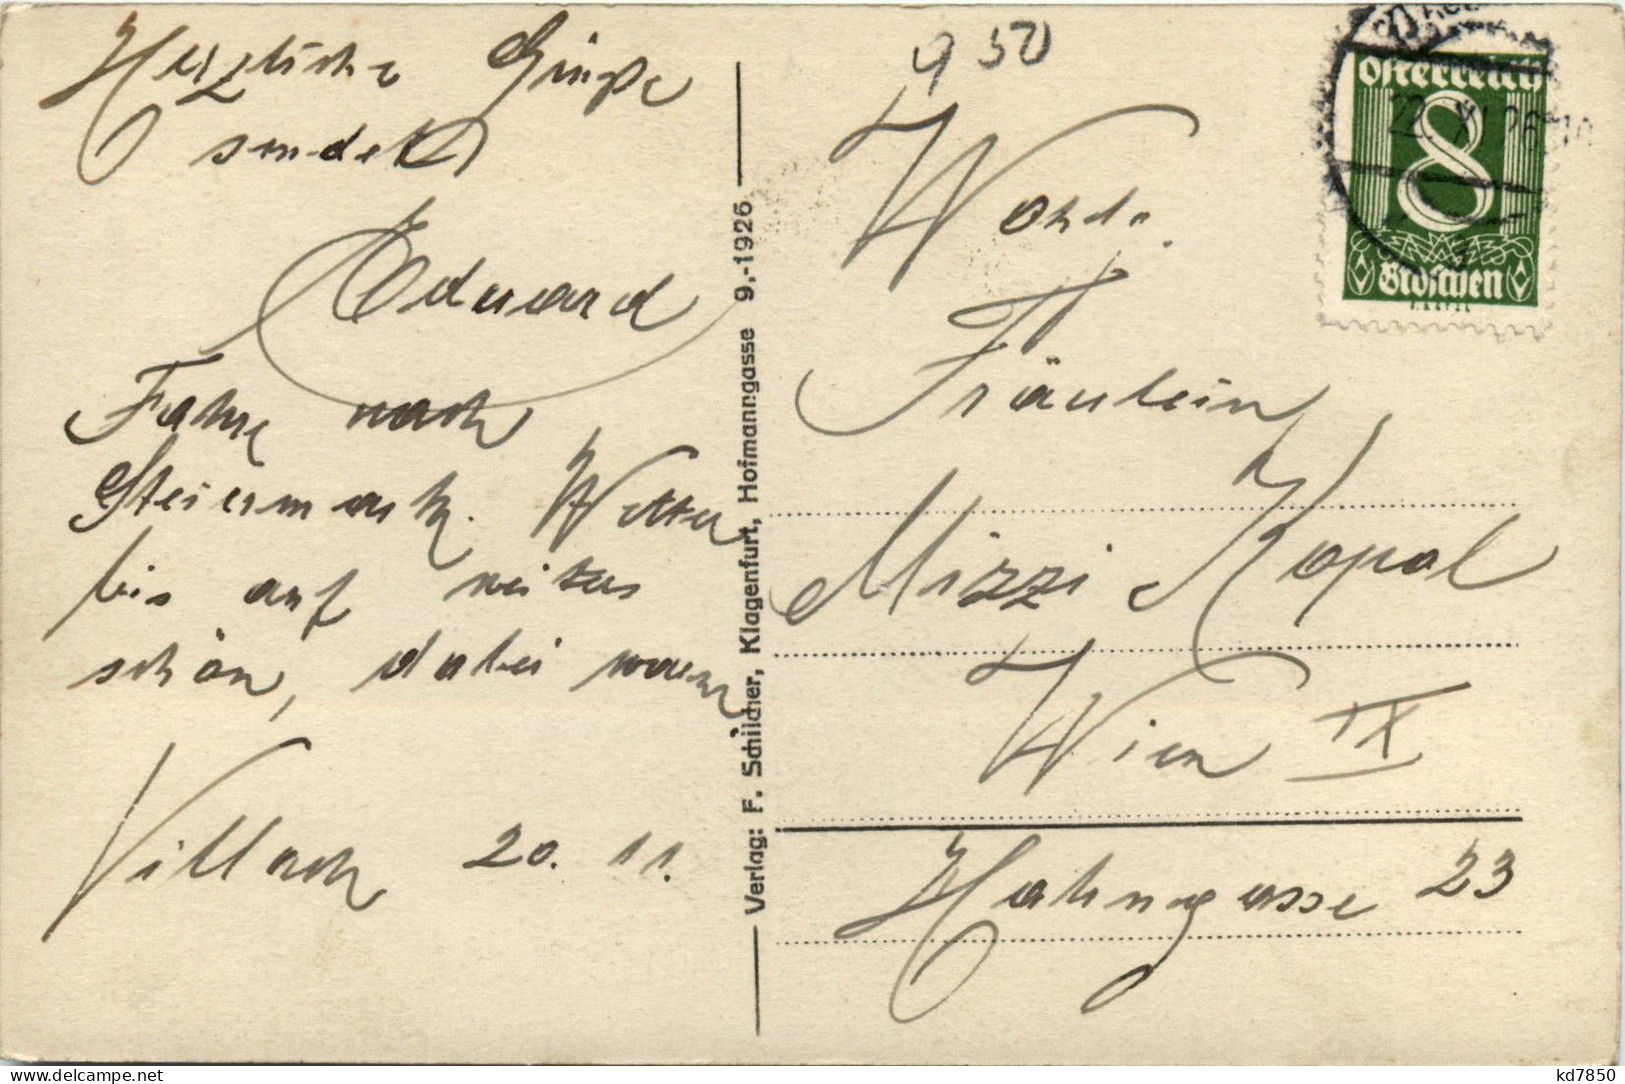 Herzliche Grüße
sendet
Eduard
Fahre nach
Steiermark. Wetter
bis auf weiteres
schön, dabei warm
Villach 20. 11.
Verlag: F. Schilcher, Klagenfurt, Hofmanngasse 9,-1926
9 50
Österreich
8
Groschen
22. XI 26 10
Fräulein
Mizzi Kopal
Wien IX
Hahngasse 23
delcampe.net
kd7850